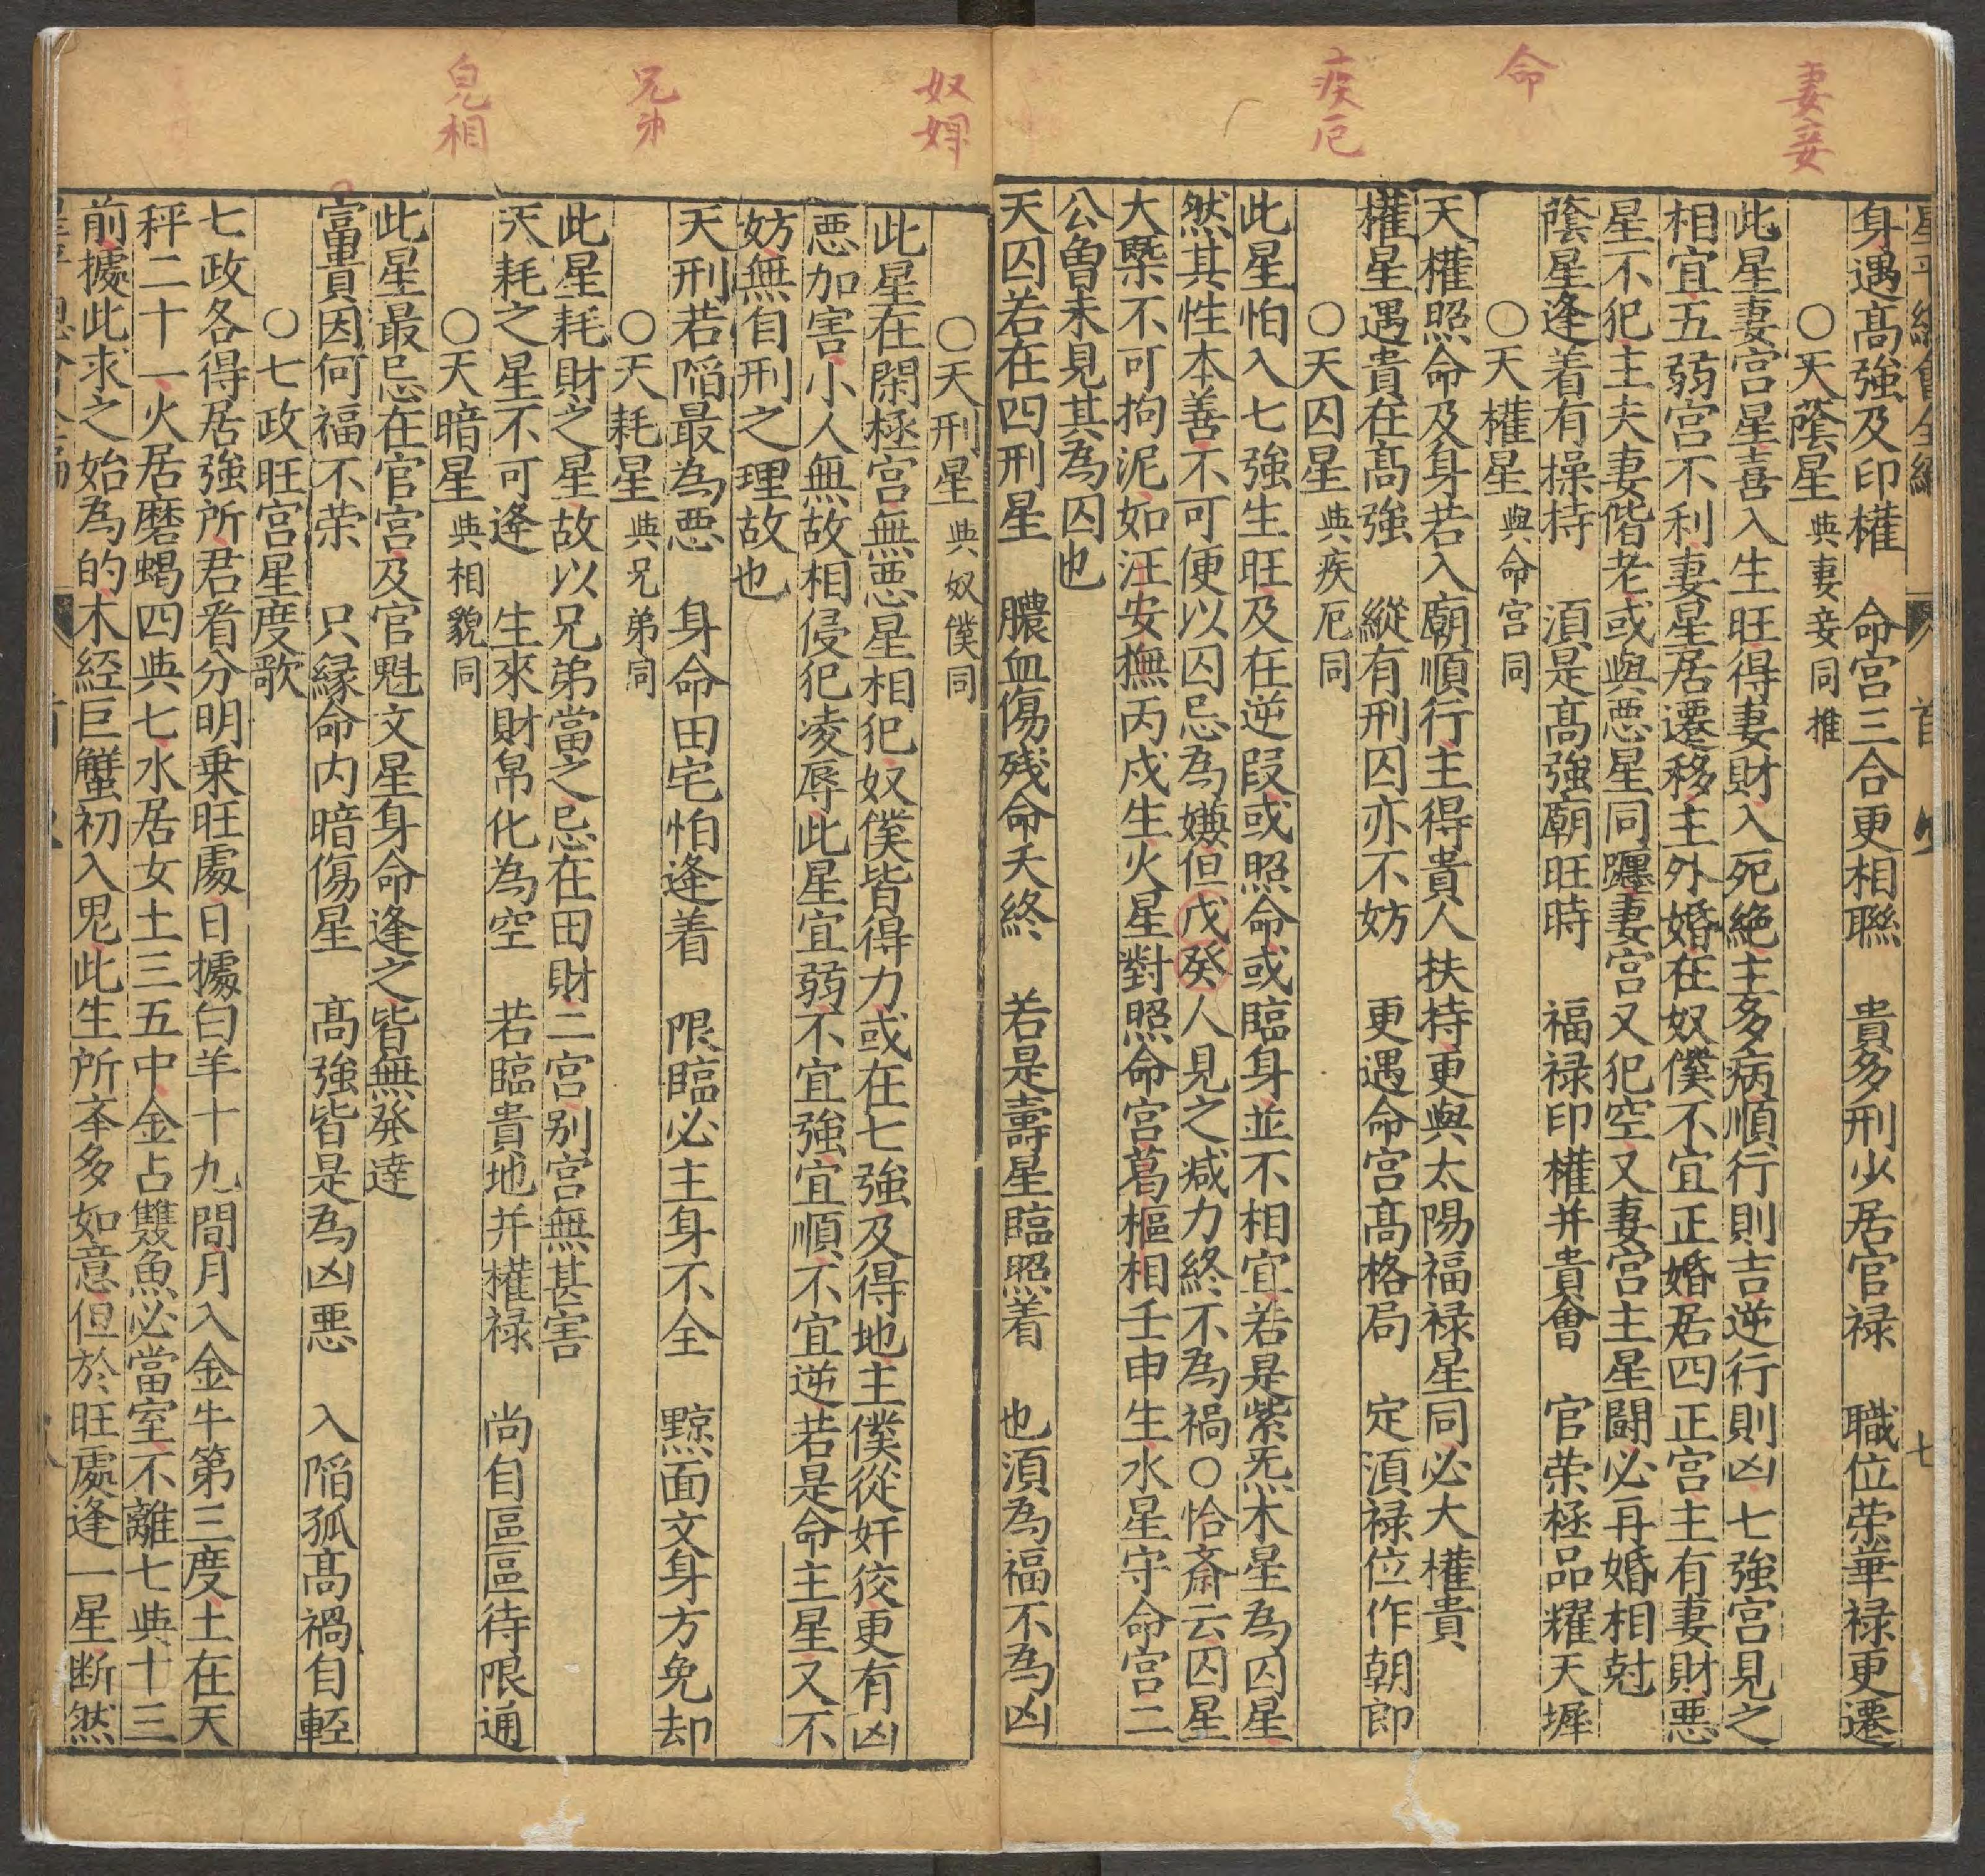 妻妾
命
疾厄
身遇髙強及印權　命宫三合更相聯　貴多刑少居官禄　職位荣華禄更遷
○天蔭星　典妻妾同推
此星妻宫星喜入生旺得妻財入死絶主多病順行則吉逆行則凶七強宫見之
相宜五弱宫不利妻星居遷移主外婚在奴僕不宜正婚居四正宫主有妻財悪
星不犯主夫妻偕老或與悪星同躔妻宫又犯空又妻宫主星闘必再婚相尅
蔭星逢着有操持　湏是髙強廟旺時　福禄印權并貴會　官荣極品耀天墀
○天權星　與命宫同
天權照命及身若入廟順行主得貴人扶持更與太陽福禄星同必大權貴
權星遇貴在髙強　縱有刑囚亦不妨　更遇命宫髙格局　定湏禄位作朝郎
○天囚星　典疾厄同
此星怕入七強生旺及在逆叚或照命或臨身並不相宜若是紫炁木星為囚星
然其性本善不可便以囚忌為嫌但戊癸人見之減力終不為禍○恰斎云囚星
大槩不可拘泥如汪安撫丙戍生火星對照命宫葛樞相壬申生水星守命宫二
公魯未見其為囚也
天囚若在四刑星　膿血傷残命夭終　若是壽星臨照着　也湏為福不為凶
奴婢
兄弟
皃相
○天刑星　典奴僕同
此星在閑極宫無悪星相犯奴僕皆得力或在七強及得地主僕從奸狡更有凶
悪加害小人無故相侵犯凌辱此星宜弱不宜強宜順不宜逆若是命主星又不
妨無自刑之理故也
天刑若陷最為悪　身命田宅怕逢着　限臨必主身不全　黥面文身方免却
○天耗星　典兄弟同
此星耗財之星故以兄弟當之忌在田財二宫别宫無甚害
天耗之星不可逢　生來財帛化為空　若臨貴地并權禄　尚自區區待限通
○天暗星　典相貌同
此星最忌在官宫及官魁文星身命逢之皆無発達
富貴因何福不荣　只縁命内暗傷星　髙強皆是為凶悪　入陷孤髙禍自輕
○七政旺宫星度歌
七政各得居強所君看分明乗旺處日據白羊十九間月入金牛第三度土在天
秤二十一火居磨蝎四典七水居女土三五中金占雙魚必當室不離七典十三
前據此求之始為的木經巨蟹初入鬼此生所夲多如意但於旺處逢一星断然